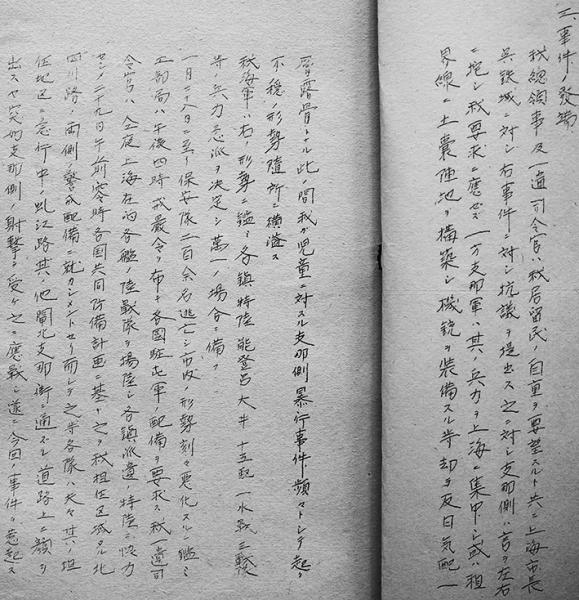 二、事件ノ發端
我總領事及一遣司令官ハ我居留民ノ自重ヲ要望スルト共ニ上海市長
呉鉄城ニ対シ右事件ニ対シ抗議ヲ提出ス之ニ対シ支那側ハ言ヲ左右
ニ託シ我要求ニ應ゼズ一方支那軍ハ其ノ兵力ヲ上海ニ集中シ或ハ租
界線ニ土嚢陣地ヲ構築シ機銃ヲ装備スル等却ヲ反日気配一
層露骨トナル此ノ間我ガ児童ニ対スル支那側暴行事件頻々トシテ起リ
不穏ノ形勢随所ニ横溢ス
我海軍ハ右ノ形勢ニ鑑ミ各鎮特陸能登呂大井十五駆一水戦三戦隊
等ノ兵力急派ヲ決定シ萬一ノ場合ニ備フ
一月二十八日ニ至リ保安隊二百余名逃亡シ市内ノ形勢刻々悪化スルニ鑑ミ
工部局ハ午後四時戒嚴令ヲ布キ各国駐屯軍ノ配備ヲ要求ス我一遣司
令官ハ全夜上海在泊各艦ノ陸戦隊ヲ揚陸シ各鎮派遣特陸ニ協力
セシメ二十九日午前零時各国共同防備計画ニ基キ之ヲ我担任区域タル北
四川路ノ両側警戒配備ニ就カシメントセリ而シテ之等各隊ハ夫々其ノ担
任地区ニ急行中虬江路其ノ他閘北支那街ニ通ズル道路上ニ顔ヲ
出スヤ突如支那側ノ射撃ヲ受ケ之ニ應戦シ遂ニ今回ノ事件ヲ惹起ス